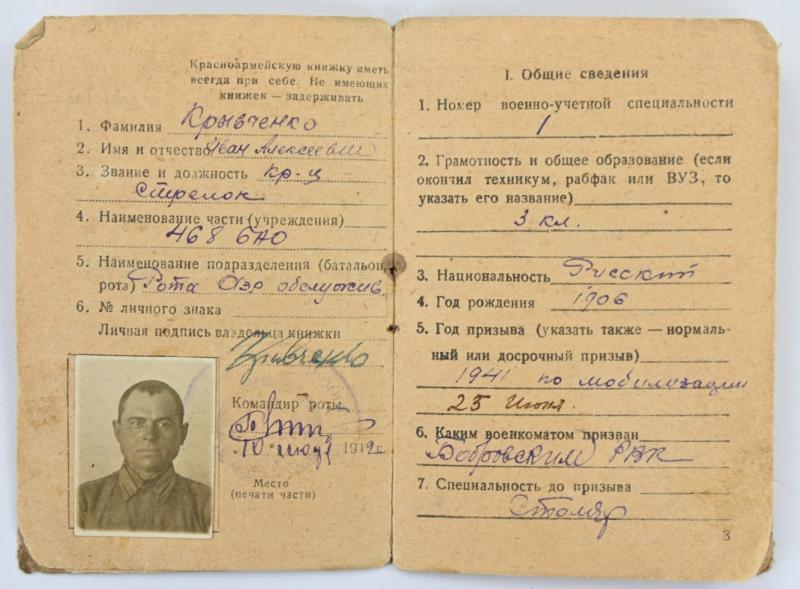 Красноармейскую книжку иметь
всегда при себе. Не имеющих
книжек — задерживать
1. Фамилия Крывченко
2. Имя и отчество Иван Алексеевич
3. Звание и должность кр-ц
Стрелок
4. Наименование части (учреждения)
468 БАО
5. Наименование подразделения (батальон,
рота) Рота Аэр обслужив.
6. № личного знака
Личная подпись владельца книжки
Крывченко
Командир роты
"10" 1942 г.
Место
(печати части)
I. Общие сведения
1. Номер военно-учетной специальности
1
2. Грамотность и общее образование (если
окончил техникум, рабфак или ВУЗ, то
указать его название)
3 кл.
3. Национальность Русский
4. Год рождения 1906
5. Год призыва (указать также — нормаль-
ный или досрочный призыв)
1941 по мобилизации
25 Июня.
6. Каким военкоматом призван
Бобровским РВК
7. Специальность до призыва
Столяр
3